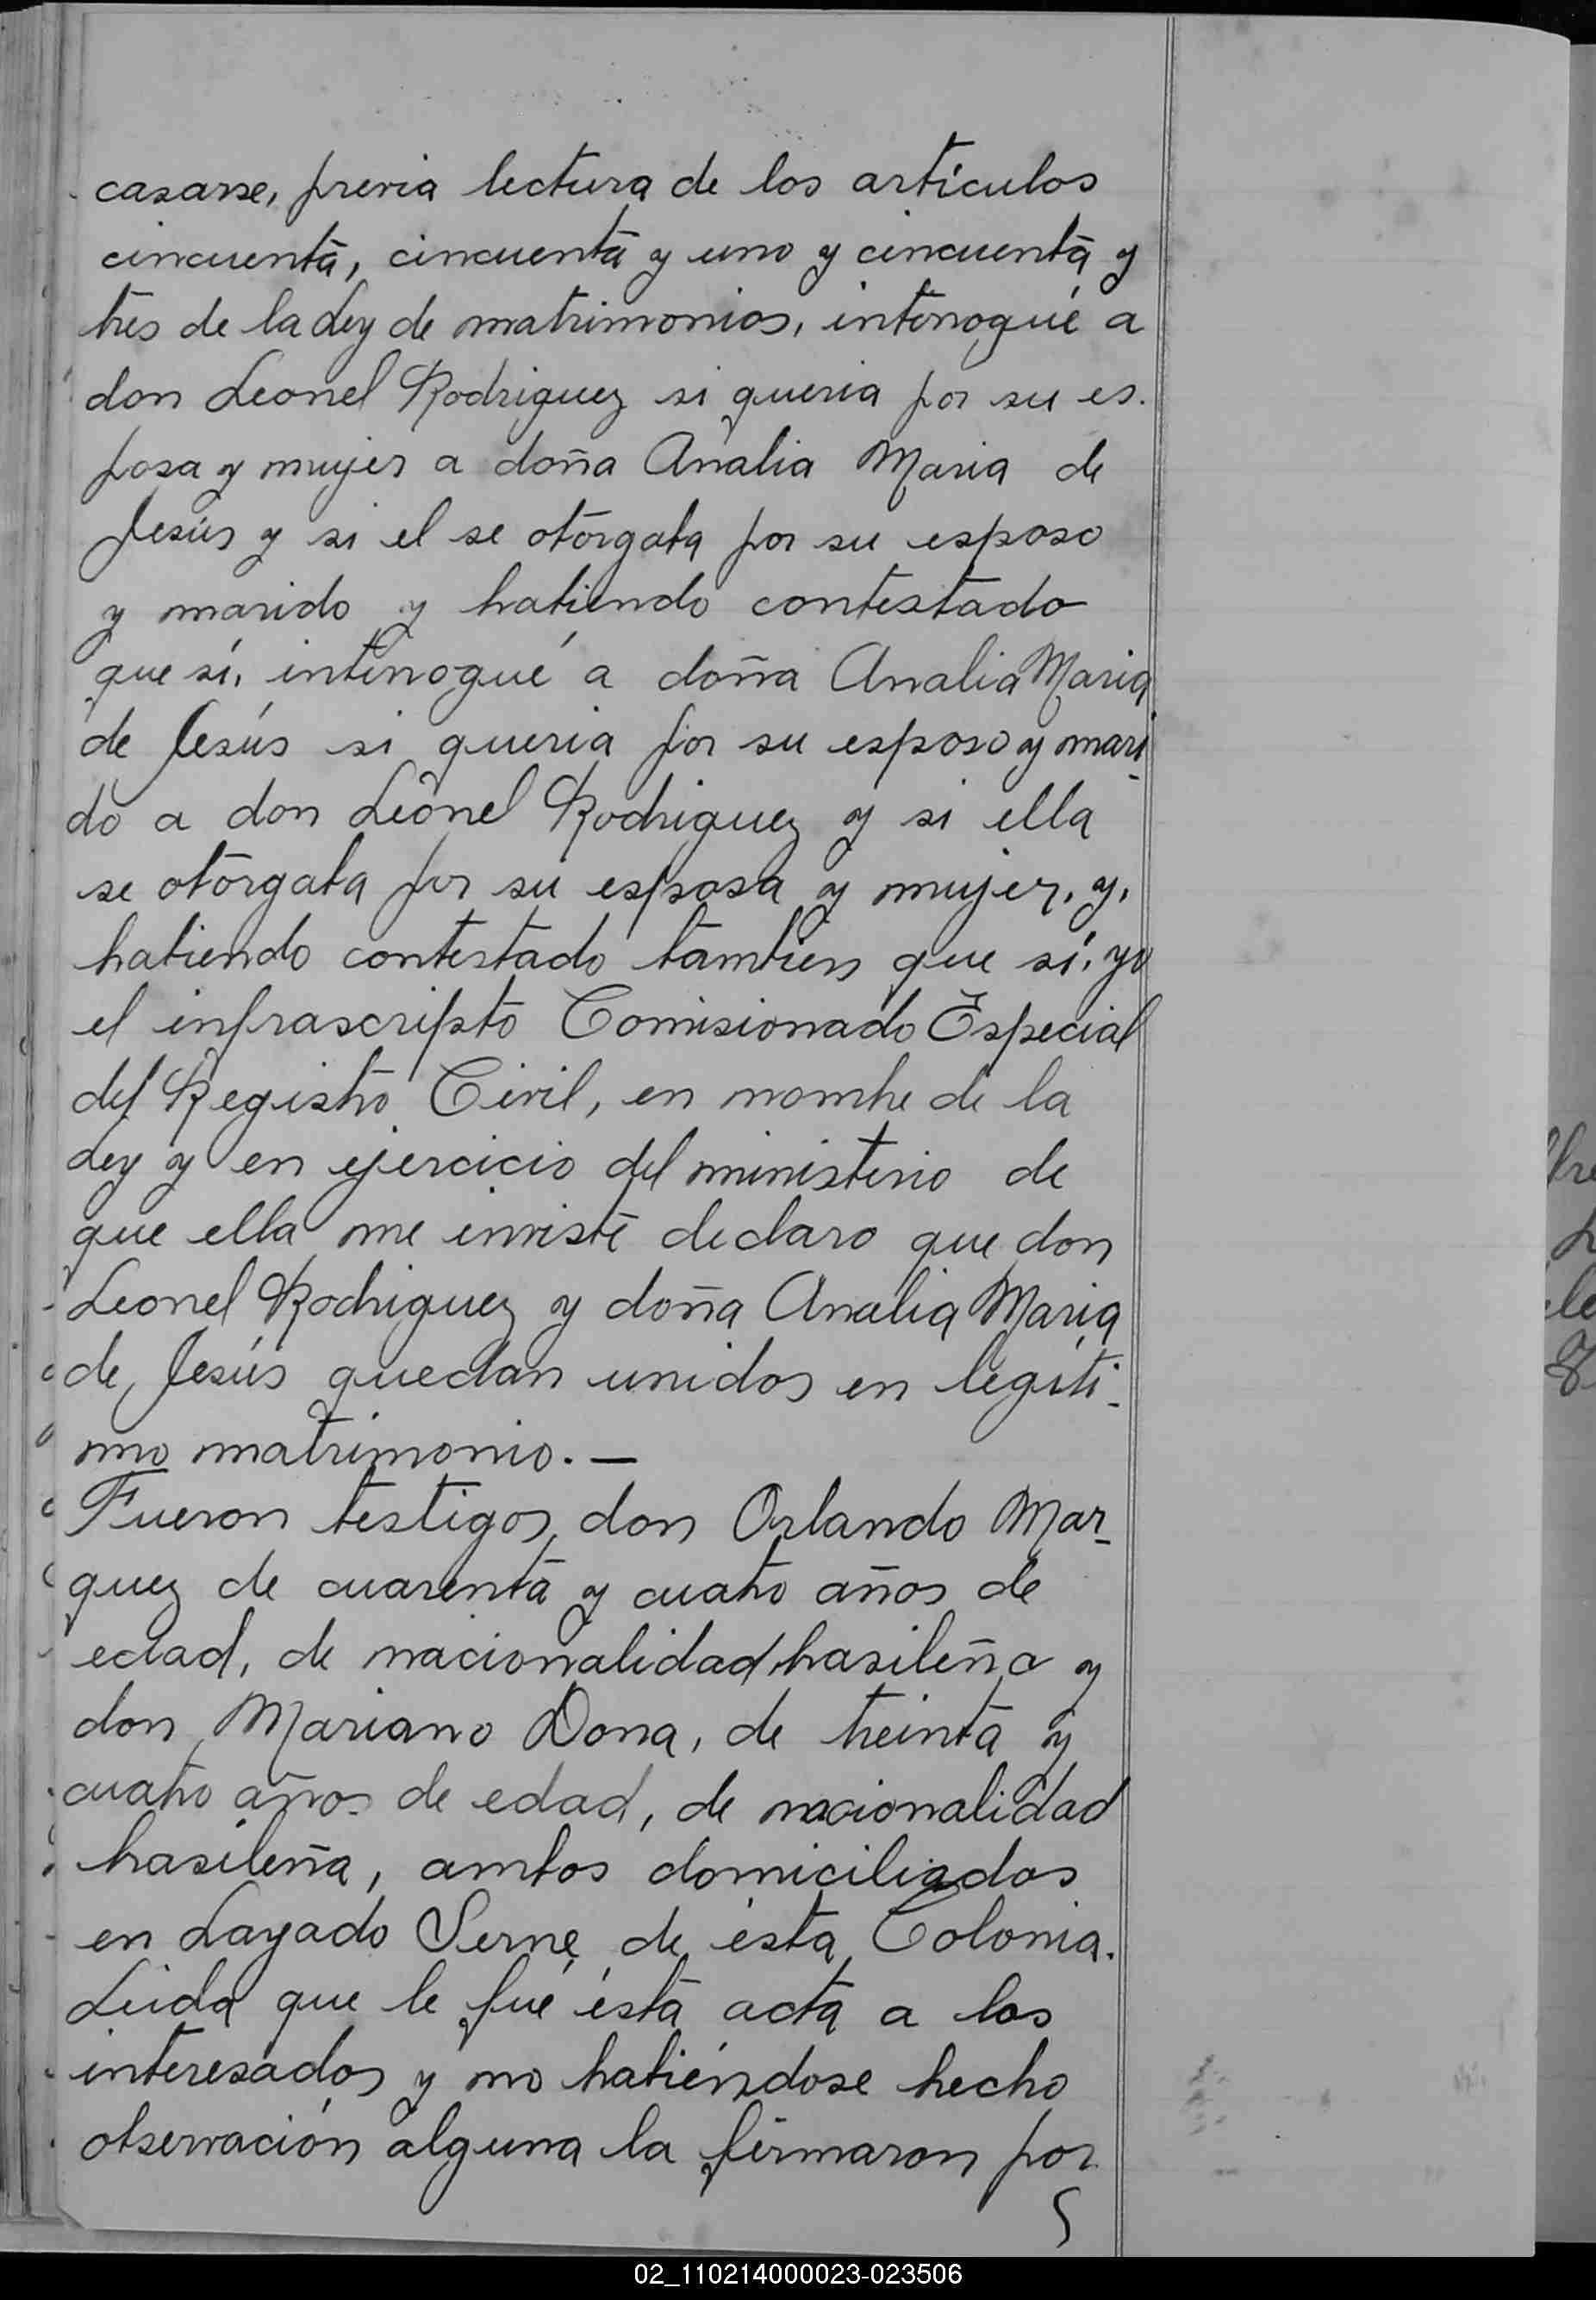 casarse, previa lectura de los artículos
cincuenta, cincuenta y uno y cincuenta y
tres de la Ley de matrimonios, interrogué a
don Leonel Rodriguez si queria por su es-
posa y mujer a doña Analia Maria de
Jesús y si el se otorgaba por su esposo
y marido y habiendo contestado
que sí, interrogué a doña Analia Maria
de Jesús si queria por su esposo y mari-
do a don Leonel Rodriguez y si ella
se otorgaba por su esposa y mujer, y,
habiendo contestado tambien que sí, yo
el infrascripto Comisionado Especial
del Registro Civil, en nombre de la
Ley y en ejercicio del ministerio de
que ella me inviste declaro que don
Leonel Rodriguez y doña Analia Maria
de Jesús quedan unidos en legíti-
mo matrimonio. —
Fueron testigos, don Orlando Mar-
quez de cuarenta y cuatro años de
edad, de nacionalidad brasileña y
don Mariano Dona, de treinta y
cuatro años de edad, de nacionalidad
brasileña, ambos domiciliados
en Layado Serne de ésta Colonia.
Leida que le fué ésta acta a los
interesados y no habiéndose hecho
observación alguna la firmaron por
02_110214000023-023506